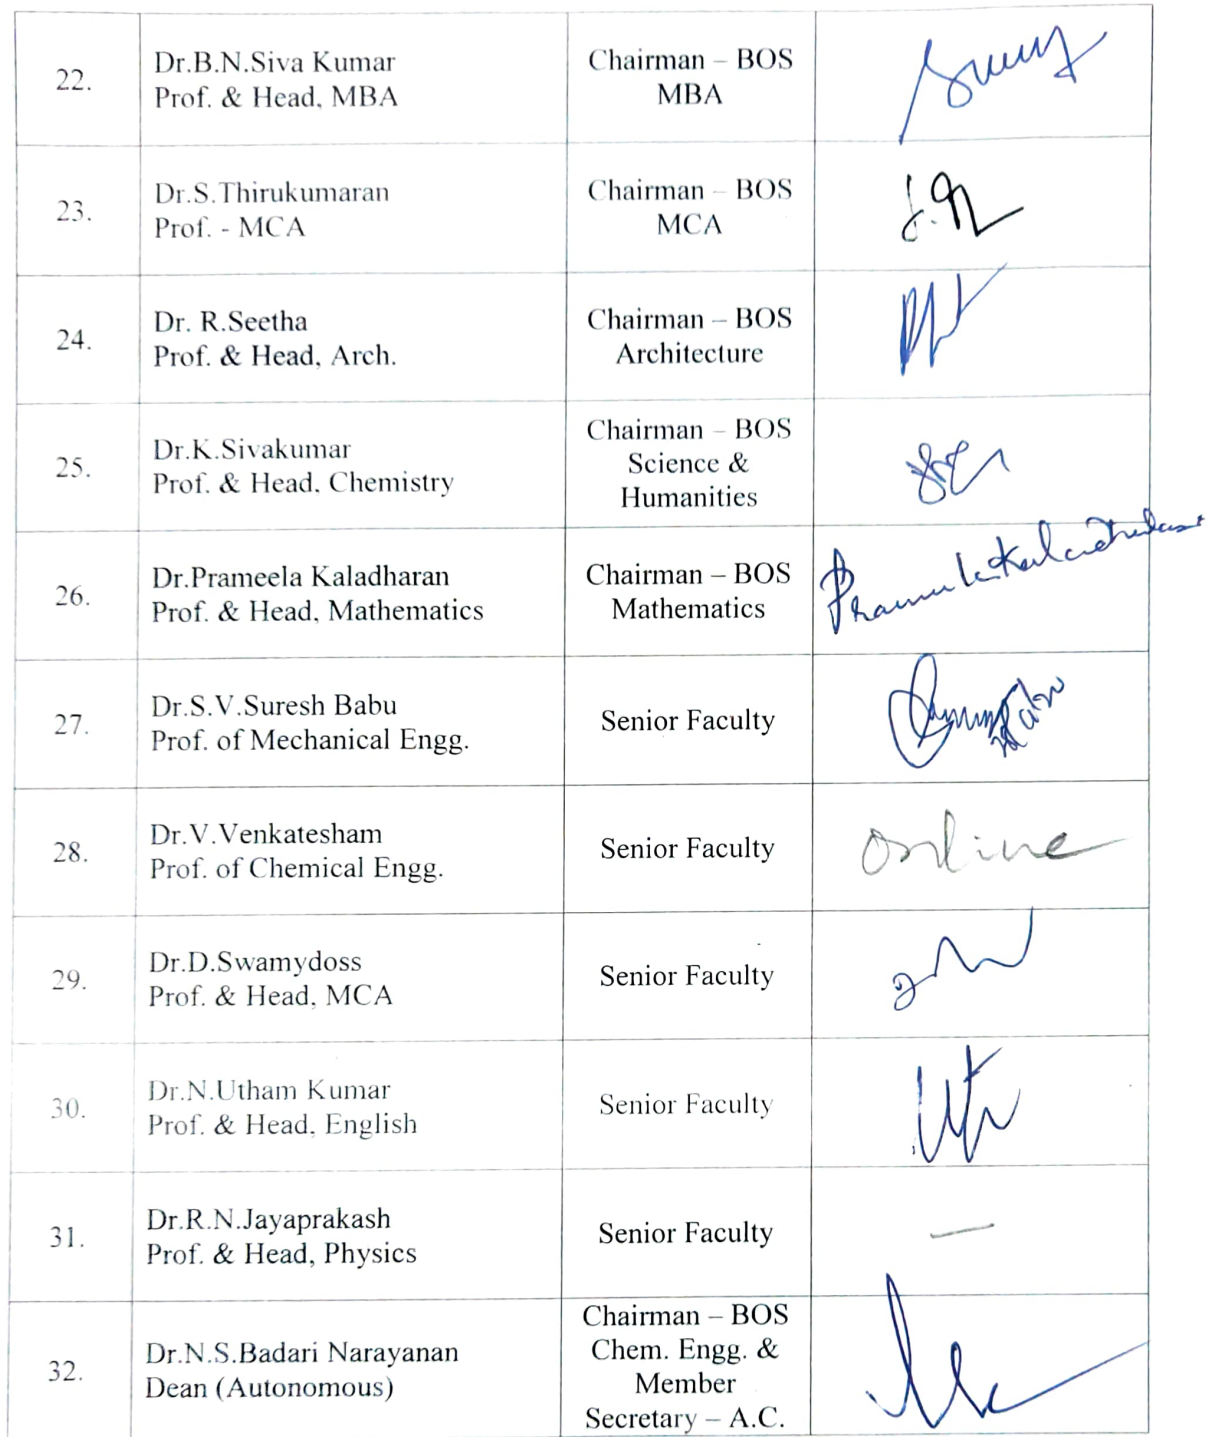 22.
Dr.B.N.Siva Kumar
Prof. & Head, MBA
Chairman – BOS
MBA
23.
Dr.S.Thirukumaran
Prof. - MCA
Chairman – BOS
MCA
24.
Dr. R.Seetha
Prof. & Head, Arch.
Chairman – BOS
Architecture
25.
Dr.K.Sivakumar
Prof. & Head, Chemistry
Chairman – BOS
Science &
Humanities
26.
Dr.Prameela Kaladharan
Prof. & Head, Mathematics
Chairman – BOS
Mathematics
27.
Dr.S.V.Suresh Babu
Prof. of Mechanical Engg.
Senior Faculty
28.
Dr.V.Venkatesham
Prof. of Chemical Engg.
Senior Faculty
Online
29.
Dr.D.Swamydoss
Prof. & Head, MCA
Senior Faculty
30.
Dr.N.Utham Kumar
Prof. & Head, English
Senior Faculty
31.
Dr.R.N.Jayaprakash
Prof. & Head, Physics
Senior Faculty
—
32.
Dr.N.S.Badari Narayanan
Dean (Autonomous)
Chairman – BOS
Chem. Engg. &
Member
Secretary – A.C.